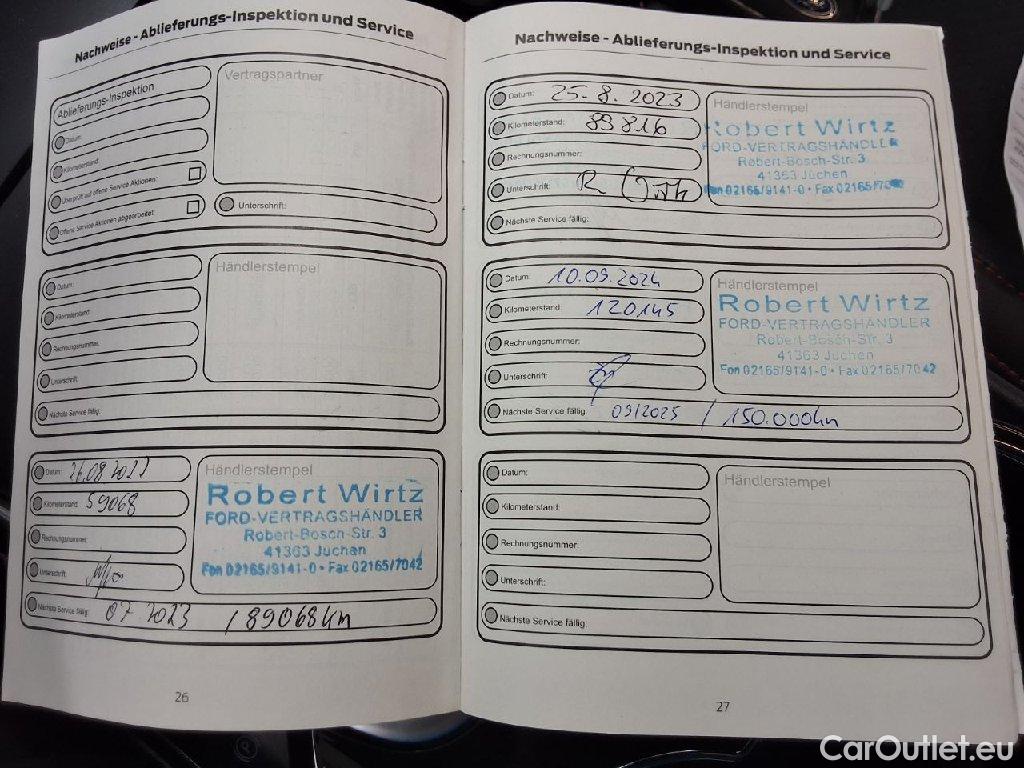 Nachweise - Ablieferungs-Inspektion und Service
Ablieferungs-Inspektion
Vertragspartner
Datum:
Kilometerstand:
Überprüft auf offene Service Aktionen:
Offene Service Aktionen abgearbeitet:
Unterschrift:
Datum:
Händlerstempel
Kilometerstand:
Rechnungsnummer:
Unterschrift:
Nächste Service fällig:
Datum:
Händlerstempel
Robert Wirtz
FORD-VERTRAGSHÄNDLER
Robert-Bosch-Str. 3
41363 Jüchen
Fon 02165/9141-0 • Fax 02165/7042
Kilometerstand: 59068
Rechnungsnummer:
Unterschrift:
Nächste Service fällig: 07.2023 / 89068km
26
Nachweise - Ablieferungs-Inspektion und Service
Datum: 25.8.2023
Kilometerstand: 89816
Rechnungsnummer:
Unterschrift:
Händlerstempel
Robert Wirtz
FORD-VERTRAGSHÄNDLER
Robert-Bosch-Str. 3
41363 Jüchen
Fon 02165/9141-0 • Fax 02165/7042
Nächste Service fällig:
Datum: 10.09.2024
Kilometerstand: 120145
Rechnungsnummer:
Unterschrift:
Händlerstempel
Robert Wirtz
FORD-VERTRAGSHÄNDLER
Robert-Bosch-Str. 3
41363 Jüchen
Fon 02165/9141-0 • Fax 02165/7042
Nächste Service fällig: 09/2025 / 150.000km
Datum:
Händlerstempel
Kilometerstand:
Rechnungsnummer:
Unterschrift:
Nächste Service fällig:
27
CarOutlet.eu